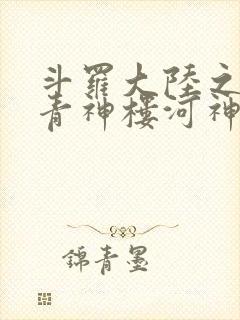 斗羅大陸之
青神樓河神
錦青墨